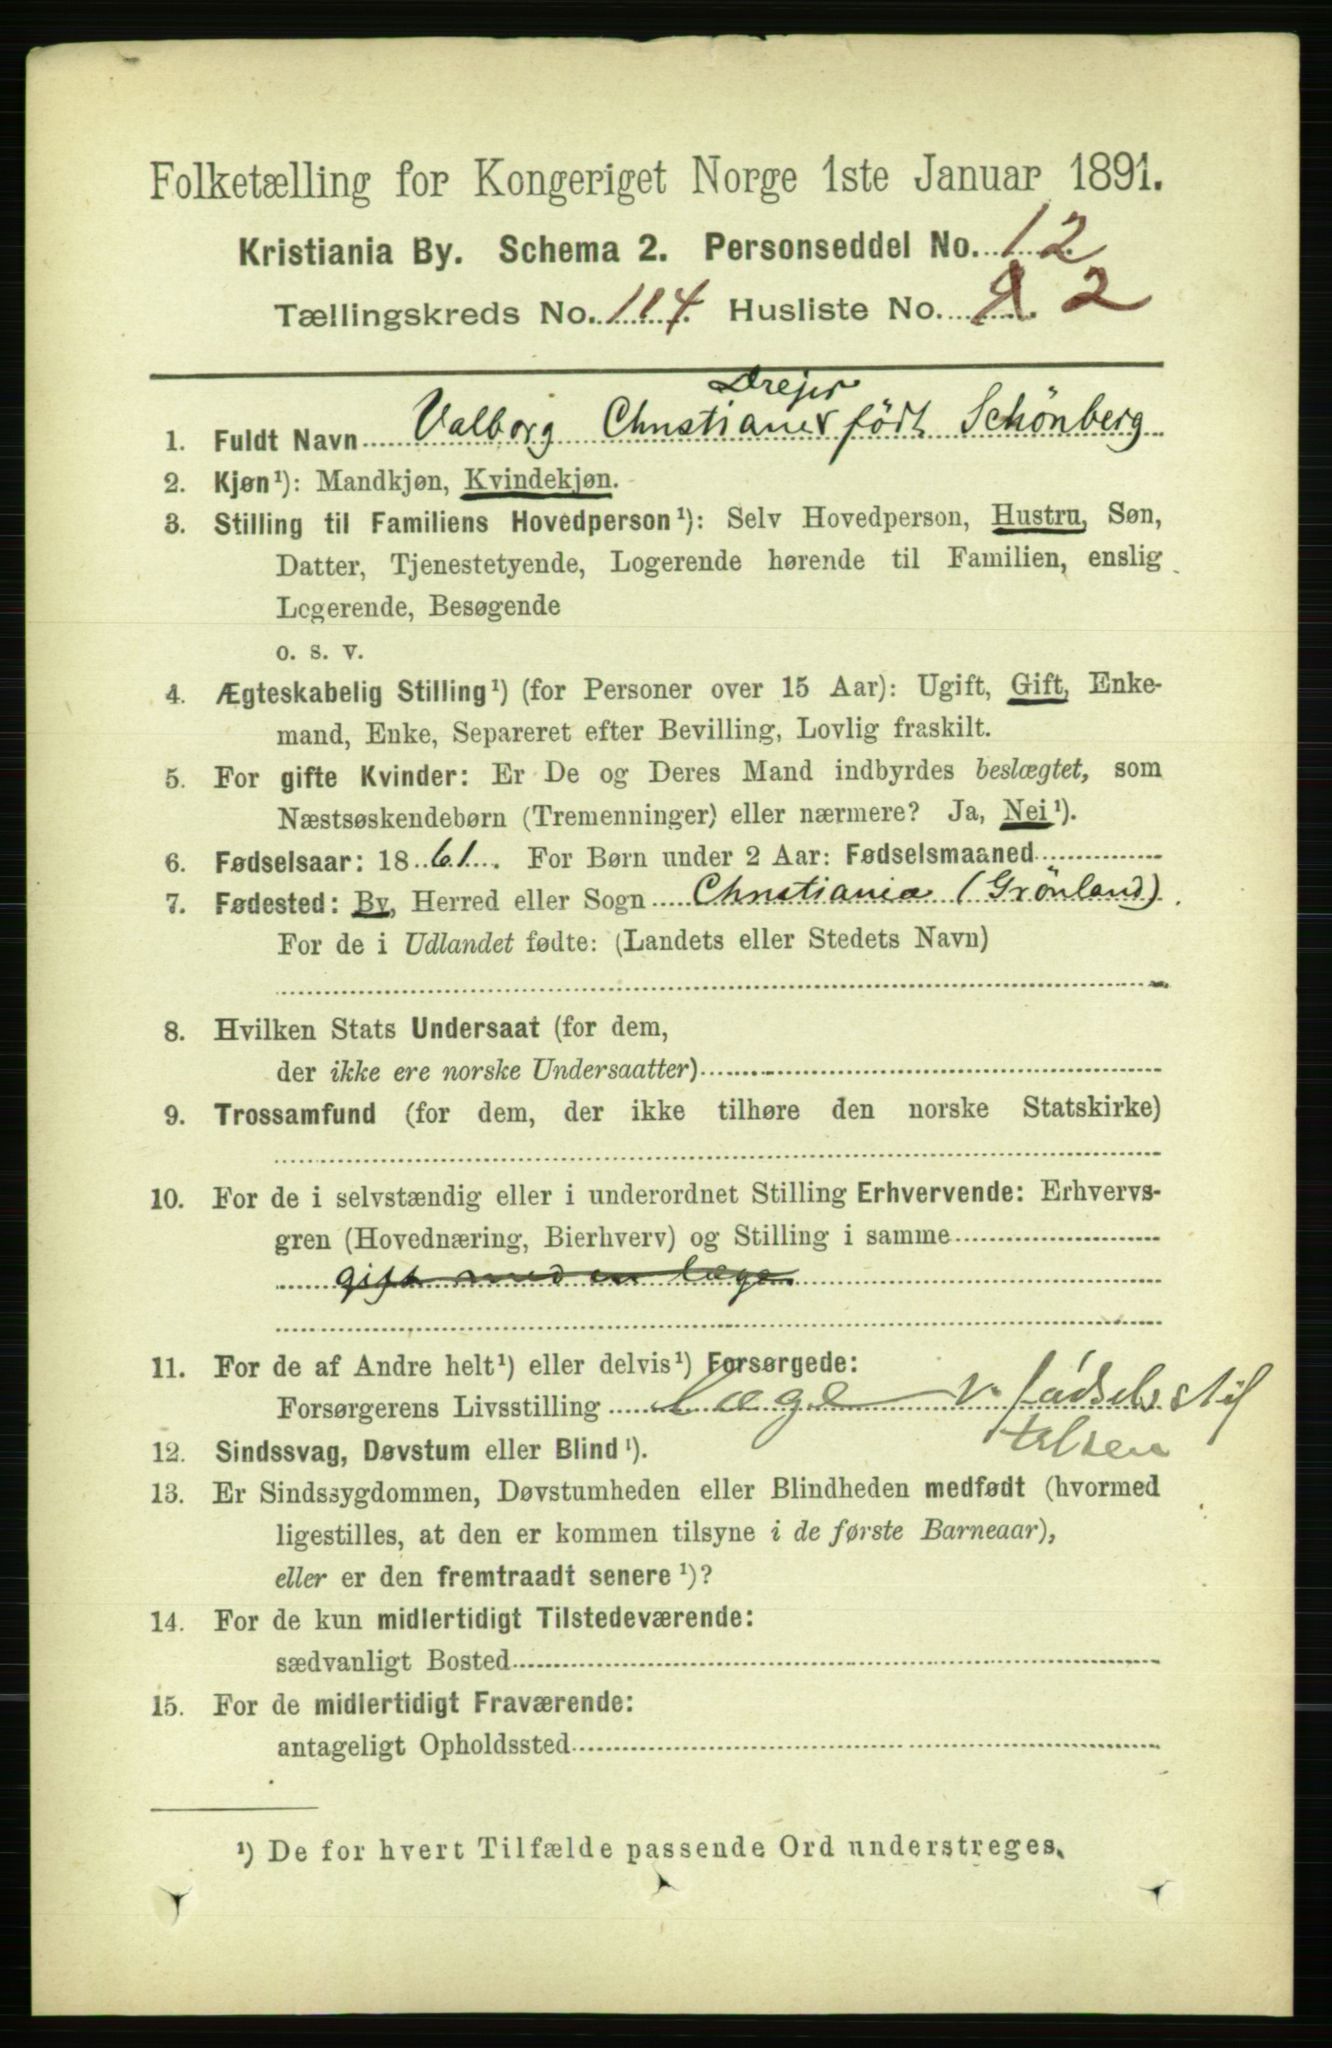 Folketælling for Kongeriget Norge 1ste Januar 1891.
Kristiania By. Schema 2. Personseddel No. 12
Tællingskreds No. 114. Husliste No. 2
Drejer
1. Fuldt Navn Valborg Christiane født Schönberg
2. Kjøn¹): Mandkjøn, Kvindekjøn.
3. Stilling til Familiens Hovedperson¹): Selv Hovedperson, Hustru, Søn,
Datter, Tjenestetyende, Logerende hørende til Familien, enslig
Logerende, Besøgende
o. s. v.
4. Ægteskabelig Stilling¹) (for Personer over 15 Aar): Ugift, Gift, Enke-
mand, Enke, Separeret efter Bevilling, Lovlig fraskilt.
5. For gifte Kvinder: Er De og Deres Mand indbyrdes beslægtet, som
Næstsøskendebørn (Tremenninger) eller nærmere? Ja, Nei¹).
6. Fødselsaar: 1861. For Børn under 2 Aar: Fødselsmaaned
7. Fødested: By, Herred eller Sogn Christiania (Grönland).
For de i Udlandet fødte: (Landets eller Stedets Navn)
8. Hvilken Stats Undersaat (for dem,
der ikke ere norske Undersaatter)
9. Trossamfund (for dem, der ikke tilhøre den norske Statskirke)
10. For de i selvstændig eller i underordnet Stilling Erhvervende: Erhvervs-
gren (Hovednæring, Bierhverv) og Stilling i samme
gift med en læge
11. For de af Andre helt¹) eller delvis¹) Forsørgede:
Forsørgerens Livsstilling Læge v. fødselsstif
telsen
12. Sindssvag, Døvstum eller Blind¹).
13. Er Sindssygdommen, Døvstumheden eller Blindheden medfødt (hvormed
ligestilles, at den er kommen tilsyne i de første Barneaar),
eller er den fremtraadt senere¹)?
14. For de kun midlertidigt Tilstedeværende:
sædvanligt Bosted
15. For de midlertidigt Fraværende:
antageligt Opholdssted
¹) De for hvert Tilfælde passende Ord understreges.